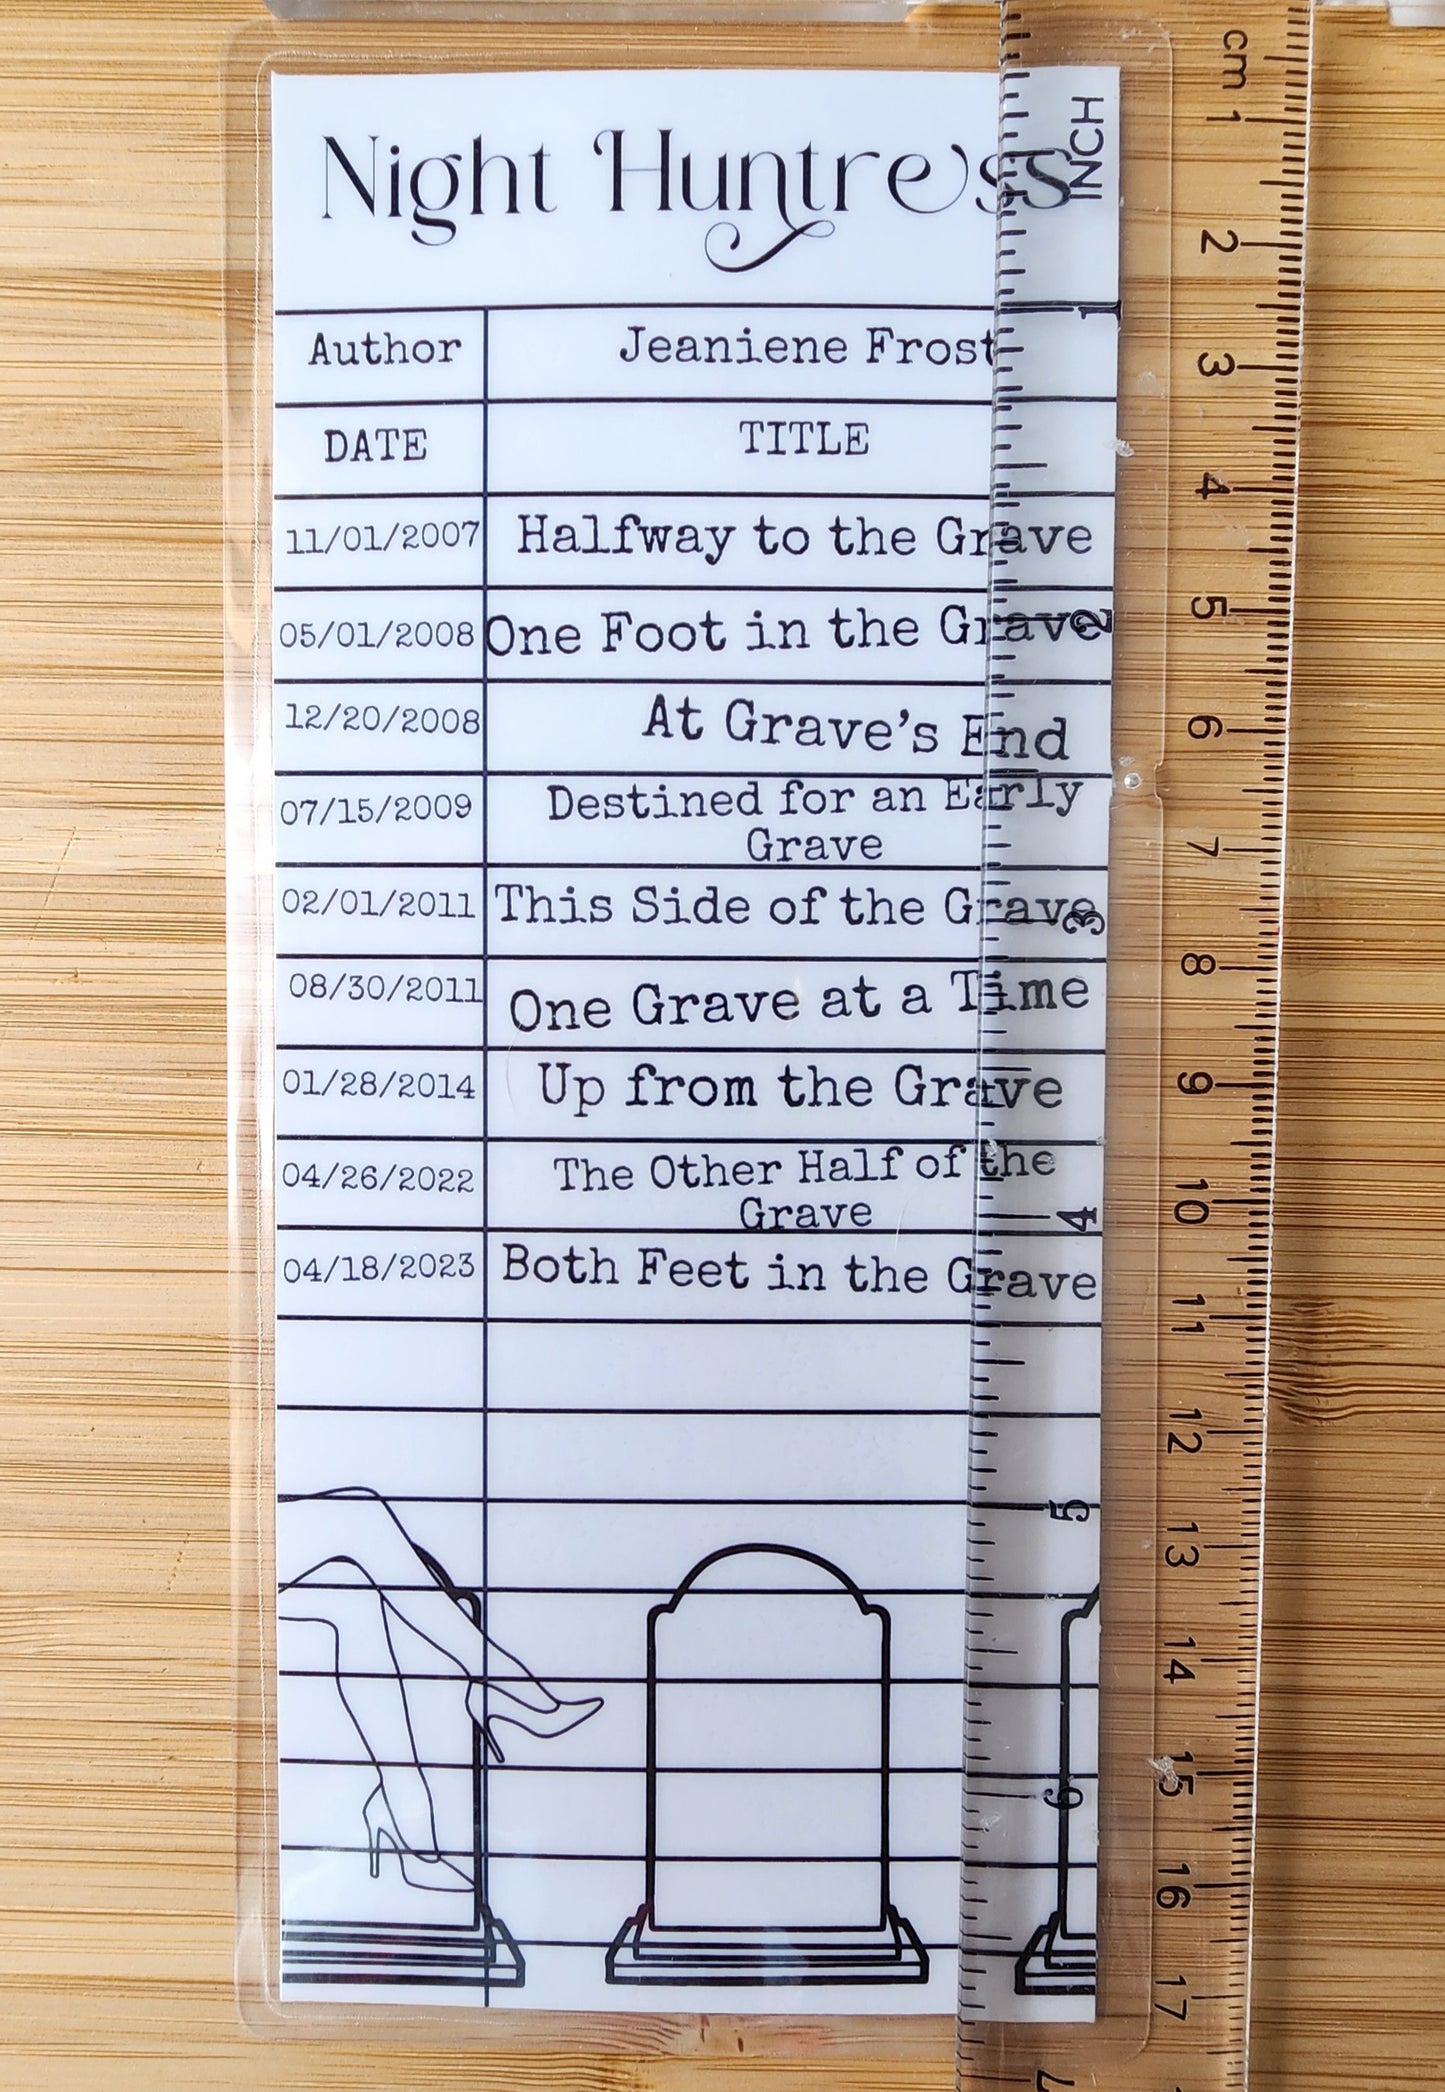 Night Huntress
Author Jeaniene Frost
DATE TITLE
11/01/2007 Halfway to the Grave
05/01/2008 One Foot in the Grave
12/20/2008 At Grave's End
07/15/2009 Destined for an Early
Grave
02/01/2011 This Side of the Grave
08/30/2011 One Grave at a Time
01/28/2014 Up from the Grave
04/26/2022 The Other Half of the
Grave
04/18/2023 Both Feet in the Grave
INCH
1
2
3
4
5
6
7
cm
1
2
3
4
5
6
7
8
9
10
11
12
13
14
15
16
17